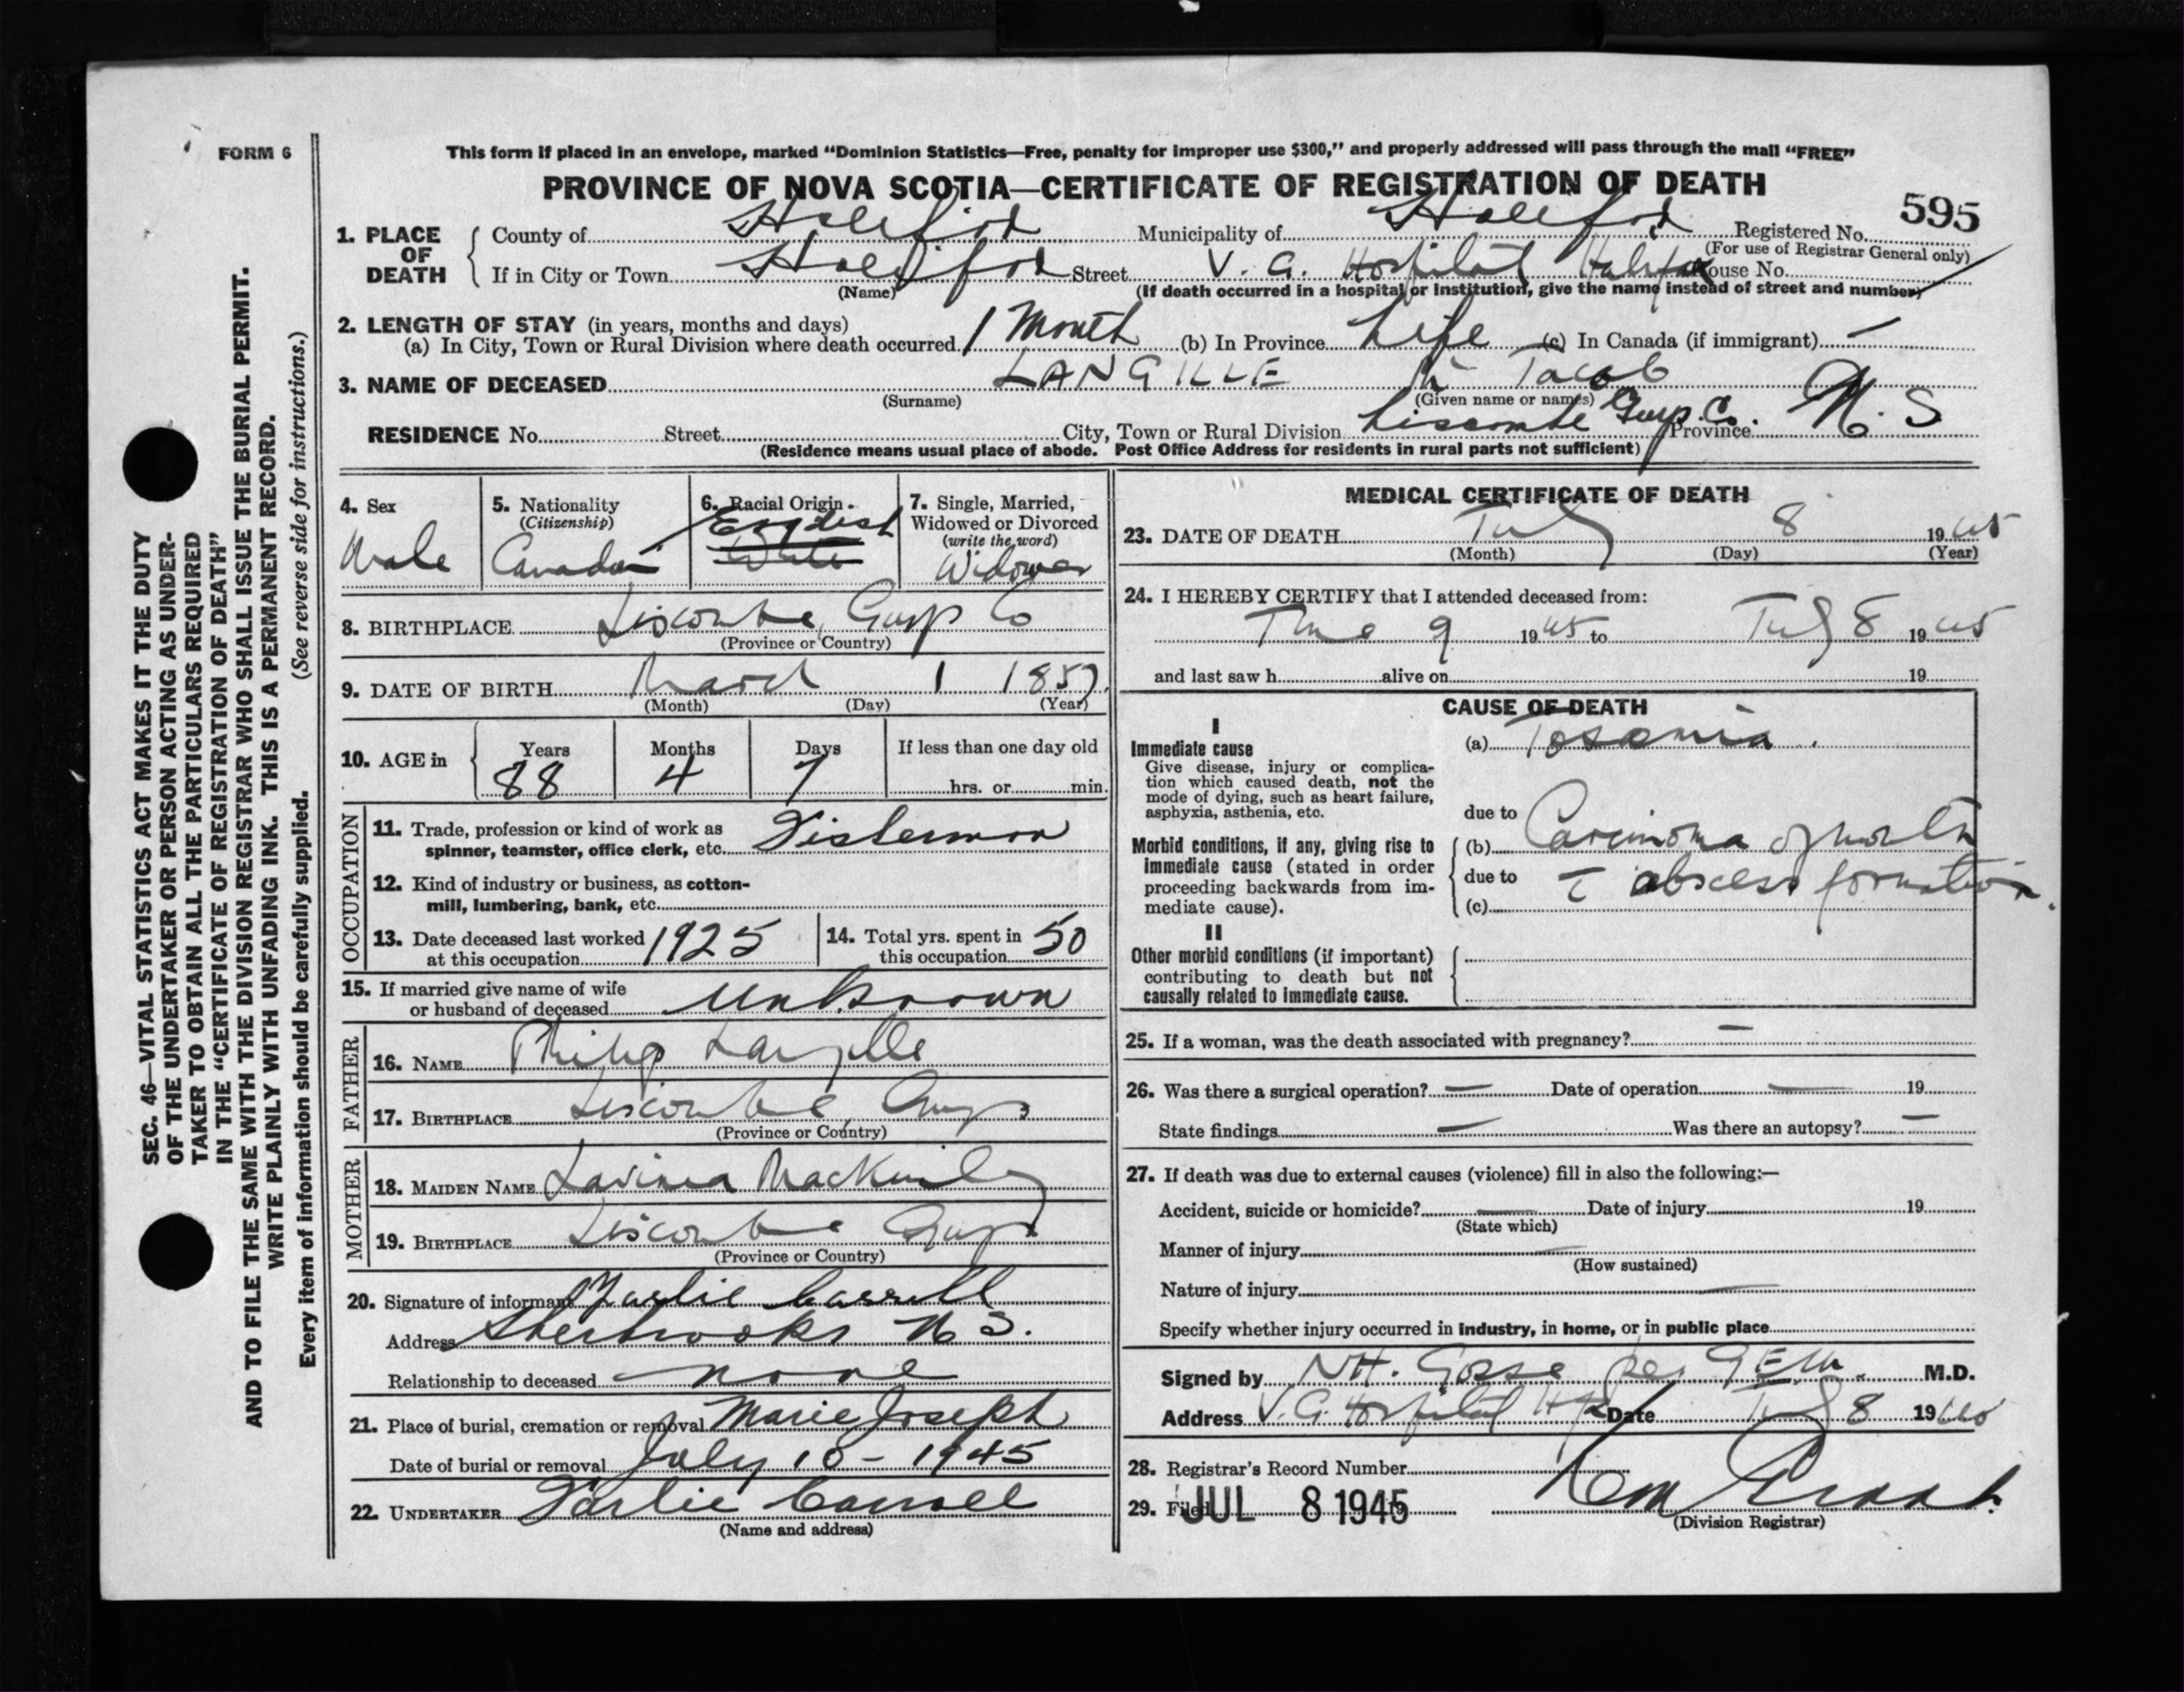 FORM 6
This form if placed in an envelope, marked "Dominion Statistics—Free, penalty for improper use $300," and properly addressed will pass through the mail "FREE"
PROVINCE OF NOVA SCOTIA—CERTIFICATE OF REGISTRATION OF DEATH
595
1. PLACE OF DEATH
County of Halifax Municipality of Halifax Registered No.
(For use of Registrar General only)
If in City or Town Halifax Street V. G. Hospital Halifax House No.
(Name) (If death occurred in a hospital or institution, give the name instead of street and number)
2. LENGTH OF STAY (in years, months and days)
(a) In City, Town or Rural Division where death occurred 1 Month (b) In Province Life (c) In Canada (if immigrant) —
3. NAME OF DECEASED LANGILLE Jacob
(Surname) (Given name or names)
RESIDENCE No. Street City, Town or Rural Division Liscombe Guys. Co. Province N. S
(Residence means usual place of abode. Post Office Address for residents in rural parts not sufficient)
4. Sex
Male
5. Nationality
(Citizenship)
Canadian
6. Racial Origin
English
White
7. Single, Married,
Widowed or Divorced
(write the word)
Widower
8. BIRTHPLACE Liscombe, Guys Co
(Province or Country)
9. DATE OF BIRTH March 1 1857
(Month) (Day) (Year)
10. AGE in
Years Months Days If less than one day old
88 4 7 hrs. or min.
OCCUPATION
11. Trade, profession or kind of work as
spinner, teamster, office clerk, etc. Fisherman
12. Kind of industry or business, as cotton-
mill, lumbering, bank, etc.
13. Date deceased last worked
at this occupation 1925
14. Total yrs. spent in
this occupation 50
15. If married give name of wife
or husband of deceased unknown
FATHER
16. NAME Philip Langille
17. BIRTHPLACE Liscombe, Guys
(Province or Country)
MOTHER
18. MAIDEN NAME Lavinia MacKinley
19. BIRTHPLACE Liscombe Guys
(Province or Country)
20. Signature of informant Farlie Carroll
Address Sherbrooke N S.
Relationship to deceased none
21. Place of burial, cremation or removal Marie Joseph
Date of burial or removal July 10 - 1945
22. UNDERTAKER Farlie Carroll
(Name and address)
MEDICAL CERTIFICATE OF DEATH
23. DATE OF DEATH July 8 1945
(Month) (Day) (Year)
24. I HEREBY CERTIFY that I attended deceased from:
June 9 1945 to July 8 1945
and last saw h alive on 19
CAUSE OF DEATH
I
Immediate cause
Give disease, injury or complica-
tion which caused death, not the
mode of dying, such as heart failure,
asphyxia, asthenia, etc.
(a) Toxemia
due to
Morbid conditions, if any, giving rise to
immediate cause (stated in order
proceeding backwards from im-
mediate cause).
(b) Carcinoma of mouth
due to c̄ abscess formation.
(c)
II
Other morbid conditions (if important)
contributing to death but not
causally related to immediate cause.
25. If a woman, was the death associated with pregnancy? —
26. Was there a surgical operation? — Date of operation — 19
State findings — Was there an autopsy? —
27. If death was due to external causes (violence) fill in also the following:—
Accident, suicide or homicide? — Date of injury 19
(State which)
Manner of injury —
(How sustained)
Nature of injury —
Specify whether injury occurred in industry, in home, or in public place
Signed by NH. Gosse per GEM. M.D.
Address V. G. Hospital Hfx Date July 8 1945
28. Registrar's Record Number
29. Filed JUL 8 1945
(Division Registrar)
SEC. 46—VITAL STATISTICS ACT MAKES IT THE DUTY
OF THE UNDERTAKER OR PERSON ACTING AS UNDER-
TAKER TO OBTAIN ALL THE PARTICULARS REQUIRED
IN THE "CERTIFICATE OF REGISTRATION OF DEATH"
AND TO FILE THE SAME WITH THE DIVISION REGISTRAR WHO SHALL ISSUE THE BURIAL PERMIT.
WRITE PLAINLY WITH UNFADING INK. THIS IS A PERMANENT RECORD.
Every item of information should be carefully supplied. (See reverse side for instructions.)